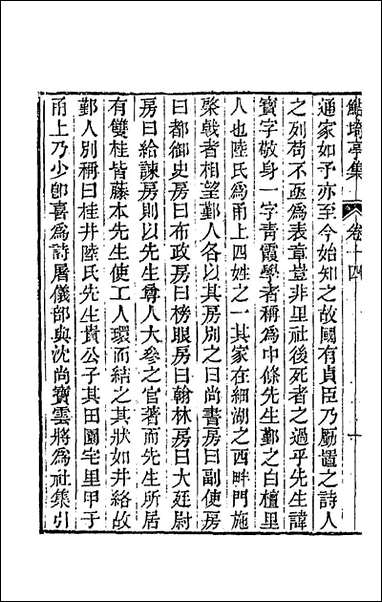 鮚埼亭集 卷十四 十
通家如予亦至今始知之故國有貞臣乃厠置之詩人
之列苟不亟爲表章豈非里社後死者之過乎先生諱
寶字敬身一字青霞學者稱爲中條先生鄞之白檀里
人也陸氏爲甬上四姓之一其家在細湖之西畔門施
棨戟者相望鄞人各以其房別之曰尚書房曰副使房
曰都御史房曰布政房曰榜眼房曰翰林房曰大廷尉
房曰給諫房則以先生尊人大參之官著而先生所居
有雙桂皆藤本先生使工人環而結之其狀如井絡故
鄞人別稱曰桂井陸氏先生貴公子其田園宅里甲于
甬上乃少卽喜爲詩屠儀部與沈尚寶雲將爲社集引